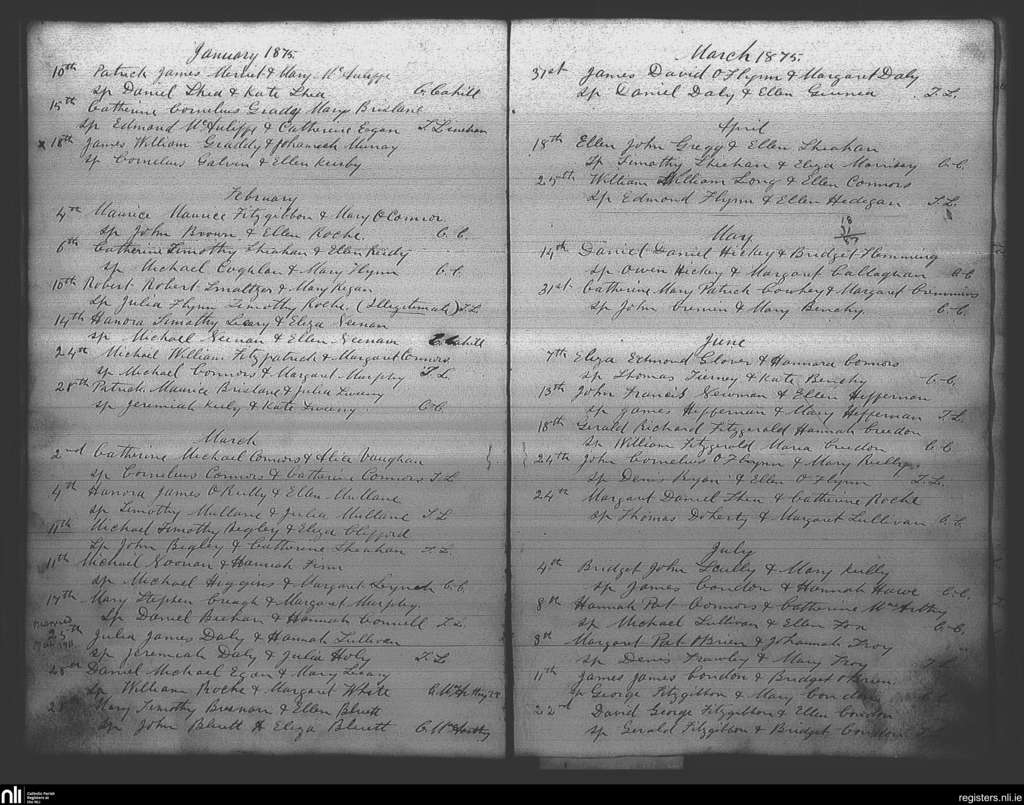 January 1875.
10th Patrick James & Mary McAuliffe
Sp Daniel Shea & Kate Shea C. Cahill
15th Catherine Cornelius Grady Mary Brislane
Sp Edmond McAuliffe & Catherine Eogan T Linehan
x 18th James William Graddy & Johannah Murray
Sp Cornelius Galvin & Ellen Kirby
February
4th Maurice Maurice Fitzgibbon & Mary O'Connor
Sp John Brown & Ellen Roche. C. C.
6th Catherine Timothy Sheahan & Ellen Reidy
Sp Michael Coghlan & Mary Flynn C. C.
10th Robert Robert Smaltzer & Mary Regan
Sp Julia Flynn Timothy Roche. (Illegitimate) T. L.
14th Hanora Timothy Leary & Eliza Neenan
Sp Michael Neenan & Ellen Neenan C Cahill
24th Michael William Fitzpatrick & Margaret Connors
Sp Michael Connors & Margaret Murphy T. L.
28th Patrick Maurice Brislane & Julia
Sp Jeremiah & Kate C. C.
March
2nd Catherine Michael Connors & Alice Vaughan
Sp Cornelius Connors & Catherine Connors T L
4th Hanora James O'Reilly & Ellen Mullane
Sp Timothy Mullane & Julia Mullane T L
11th Michael Timothy Begley & Eliza Clifford
Sp John Begley & Catherine Sheahan T. L.
11th Michael Noonan & Hannah Finn
Sp Michael Higgins & Margaret C. C.
17th Mary Stephen Creagh & Margaret Murphy.
Sp Daniel & Hannah Connell T. L.
25th Julia James Daly & Hannah Sullivan
Sp Jeremiah Daly & Julia T. L.
28th Daniel Michael Egan & Mary Leary
Sp William Roche & Margaret White
28 Mary Timothy Brosnan & Ellen Bluett
Sp John Bluett & Eliza Bluett C. McCarthy
March 1875.
31st James David O'Flynn & Margaret Daly
Sp Daniel Daly & Ellen Guinea T. L.
April
18th Ellen John Gregg & Ellen Sheahan
Sp Timothy Sheehan & Eliza Morrissy C. C.
25th William William Long & Ellen Connors
Sp Edmond Flynn & Ellen Hedigan T. L.
May
14th Daniel Daniel Hickey & Bridget Flemming
Sp Owen Hickey & Margaret Callaghan C. C
31st Catherine Mary Patrick Cowhey & Margaret Crimmins
Sp John Cremin & Mary Binchy. C. C.
June
7th Eliza Edmond Glover & Hannora Connors
Sp Thomas Tierney & Kate Binchy C. C.
13th John Francis Newman & Ellen Heffernan
Sp James Heffernan & Mary Heffernan T. L.
18th Gerald Richard Fitzgerald Hannah Creedon
Sp William Fitzgerald Maria Creedon C. C.
24th John Cornelius O'Flynn & Mary
Sp Denis Ryan & Ellen O'Flynn T. L.
24th Margaret Daniel Shea & Catherine Roche
Sp Thomas Doherty & Margaret Sullivan C. C.
July
4th Bridget John Scully & Mary
Sp James Condon & Hannah Hawe C. C.
8th Hannah Pat Connors & Catherine McCarthy
Sp Michael Sullivan & Ellen Fox C. C.
8th Margaret Pat O'Brien & Johannah Troy
Sp Denis Frawley & Mary Troy T. L.
11th James James Condon & Bridget O'Brien
Sp George Fitzgibbon & Mary Condon
22nd David George Fitzgibbon & Ellen Condon
Sp Gerald Fitzgibbon & Bridget Condon T L
nli Catholic Parish Registers at the NLI
registers.nli.ie